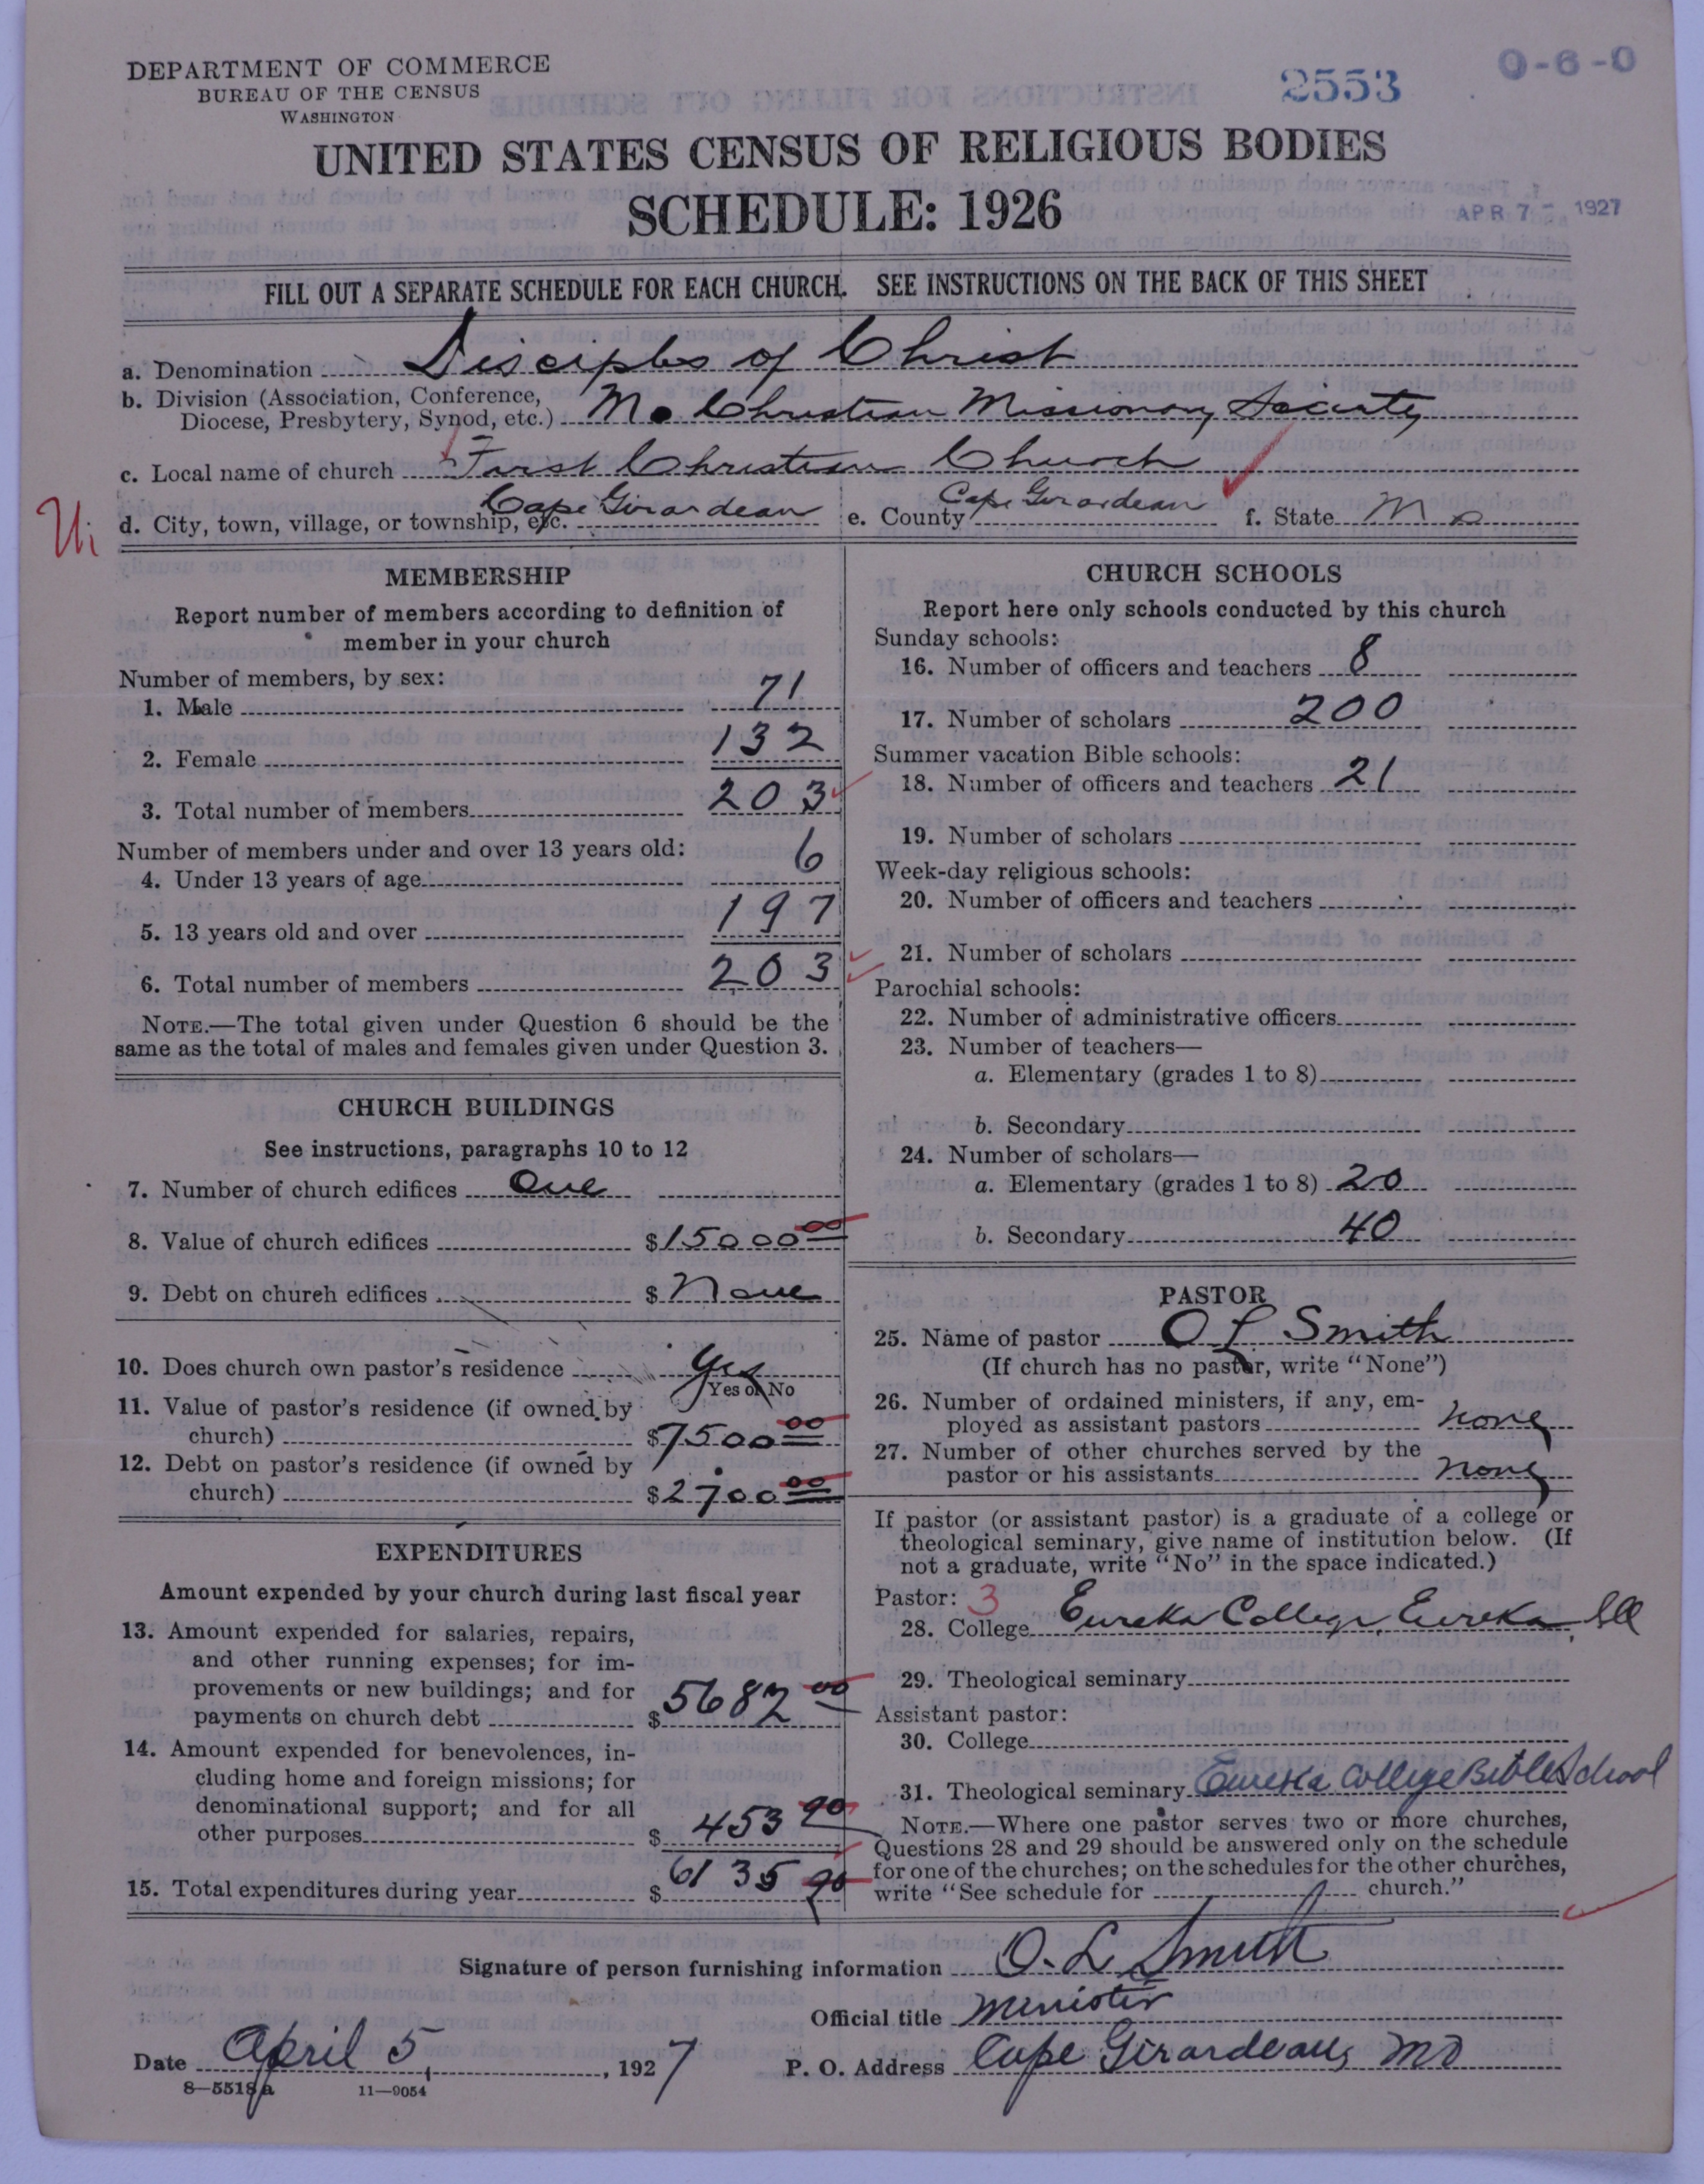 DEPARTMENT OF COMMERCE
BUREAU OF THE CENSUS
WASHINGTON
2553
0-6-0
UNITED STATES CENSUS OF RELIGIOUS BODIES
SCHEDULE: 1926
APR 7 - 1927
FILL OUT A SEPARATE SCHEDULE FOR EACH CHURCH. SEE INSTRUCTIONS ON THE BACK OF THIS SHEET
a. Denomination Disciples of Christ
b. Division (Association, Conference,
Diocese, Presbytery, Synod, etc.) Mo Christian Missionary Society
c. Local name of church First Christian Church
d. City, town, village, or township, etc. Cape Girardeau e. County Cape Girardeau f. State Mo
MEMBERSHIP
Report number of members according to definition of
member in your church
Number of members, by sex:
1. Male 71
2. Female 132
3. Total number of members 203
Number of members under and over 13 years old:
4. Under 13 years of age 6
5. 13 years old and over 197
6. Total number of members 203
NOTE.—The total given under Question 6 should be the
same as the total of males and females given under Question 3.
CHURCH BUILDINGS
See instructions, paragraphs 10 to 12
7. Number of church edifices One
8. Value of church edifices $15000 00
9. Debt on church edifices $ None
10. Does church own pastor's residence Yes
Yes or No
11. Value of pastor's residence (if owned by
church) $7500 00
12. Debt on pastor's residence (if owned by
church) $2700 00
EXPENDITURES
Amount expended by your church during last fiscal year
13. Amount expended for salaries, repairs,
and other running expenses; for im-
provements or new buildings; and for
payments on church debt $5682 00
14. Amount expended for benevolences, in-
cluding home and foreign missions; for
denominational support; and for all
other purposes $453 90
15. Total expenditures during year $6135 90
CHURCH SCHOOLS
Report here only schools conducted by this church
Sunday schools:
16. Number of officers and teachers 8
17. Number of scholars 200
Summer vacation Bible schools:
18. Number of officers and teachers 21
19. Number of scholars
Week-day religious schools:
20. Number of officers and teachers
21. Number of scholars
Parochial schools:
22. Number of administrative officers
23. Number of teachers—
a. Elementary (grades 1 to 8)
b. Secondary
24. Number of scholars—
a. Elementary (grades 1 to 8) 20
b. Secondary 40
PASTOR
25. Name of pastor O L Smith
(If church has no pastor, write "None")
26. Number of ordained ministers, if any, em-
ployed as assistant pastors none
27. Number of other churches served by the
pastor or his assistants none
If pastor (or assistant pastor) is a graduate of a college or
theological seminary, give name of institution below. (If
not a graduate, write "No" in the space indicated.)
Pastor: 3
28. College Eureka College, Eureka, Ill
29. Theological seminary
Assistant pastor:
30. College
31. Theological seminary Eureka College Bible School
NOTE.—Where one pastor serves two or more churches,
Questions 28 and 29 should be answered only on the schedule
for one of the churches; on the schedules for the other churches,
write "See schedule for church."
Signature of person furnishing information O. L Smith
Official title Minister
Date April 5, 1927 P. O. Address Cape Girardeau, Mo
8—5518a 11—9054